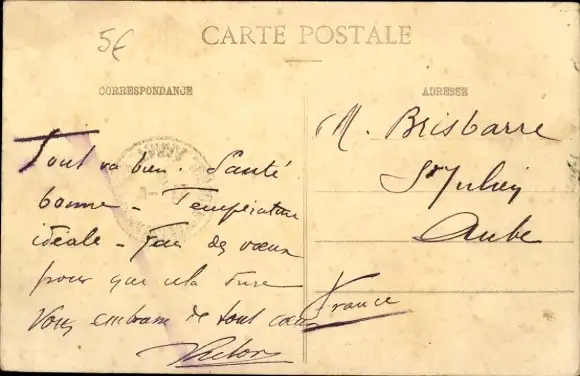 5€
CARTE POSTALE
CORRESPONDANCE
ADRESSE
Tout va bien. Santé
bonne - Température
idéale - fais des vœux
pour que cela dure
Vous embrasse de tout cœur
Victor
M. Brisbarre
St Julien
Aube
France